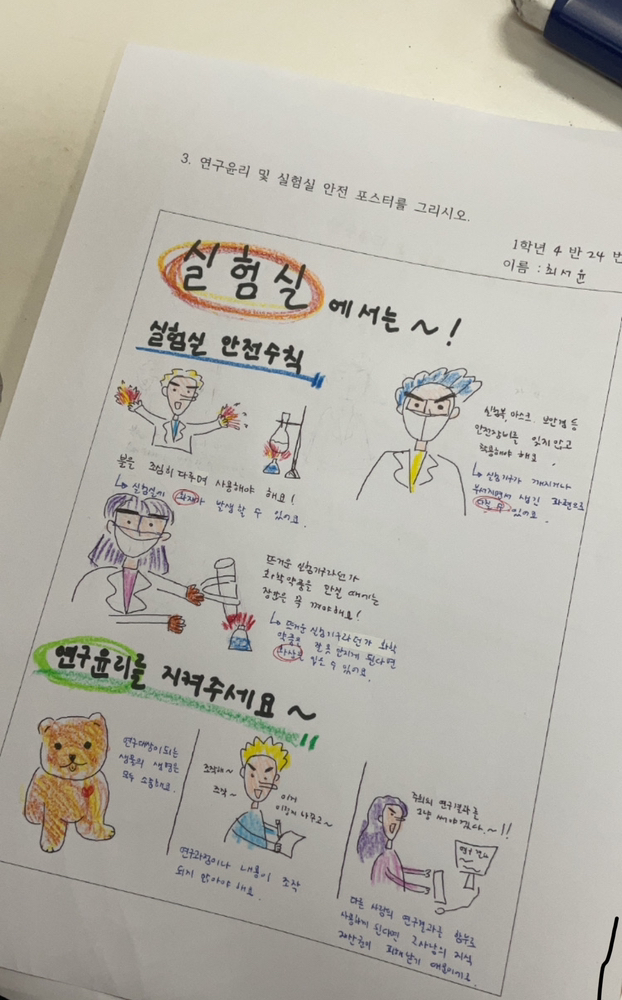 3. 연구윤리 및 실험실 안전 포스터를 그리시오.
1학년 4 반 24 번
이름 : 최서윤
실험실에서는 ~ !
실험실 안전수칙
불을 조심히 다루며 사용해야 해요!
↳ 실험실에 화재가 발생할 수 있어요.
실험복, 마스크, 보안경 등
안전장비를 잊지 않고
착용해야 해요.
↳ 실험기구가 깨지거나
부서지면서 생긴 파편으로
다칠 수 있어요.
뜨거운 실험기구라던가
화학약품을 만질 때에는
장갑은 꼭 껴야해요!
↳ 뜨거운 실험기구라던가 화학
약품을 잘못 만지게 된다면
화상을 입을 수 있어요.
연구윤리를 지켜주세요 ~
연구대상이 되는
생물의 생명은
모두 소중해요.
조작해~
조작~
이거
이렇게 바꾸고~
연구과정이나 내용이 조작
되지 않아야 해요.
연구결과를
그냥 써야겠다.~!!
다른 사람의 연구결과를 함부로
사용하게 된다면 그사람의 지식
재산권이 때문이에요.